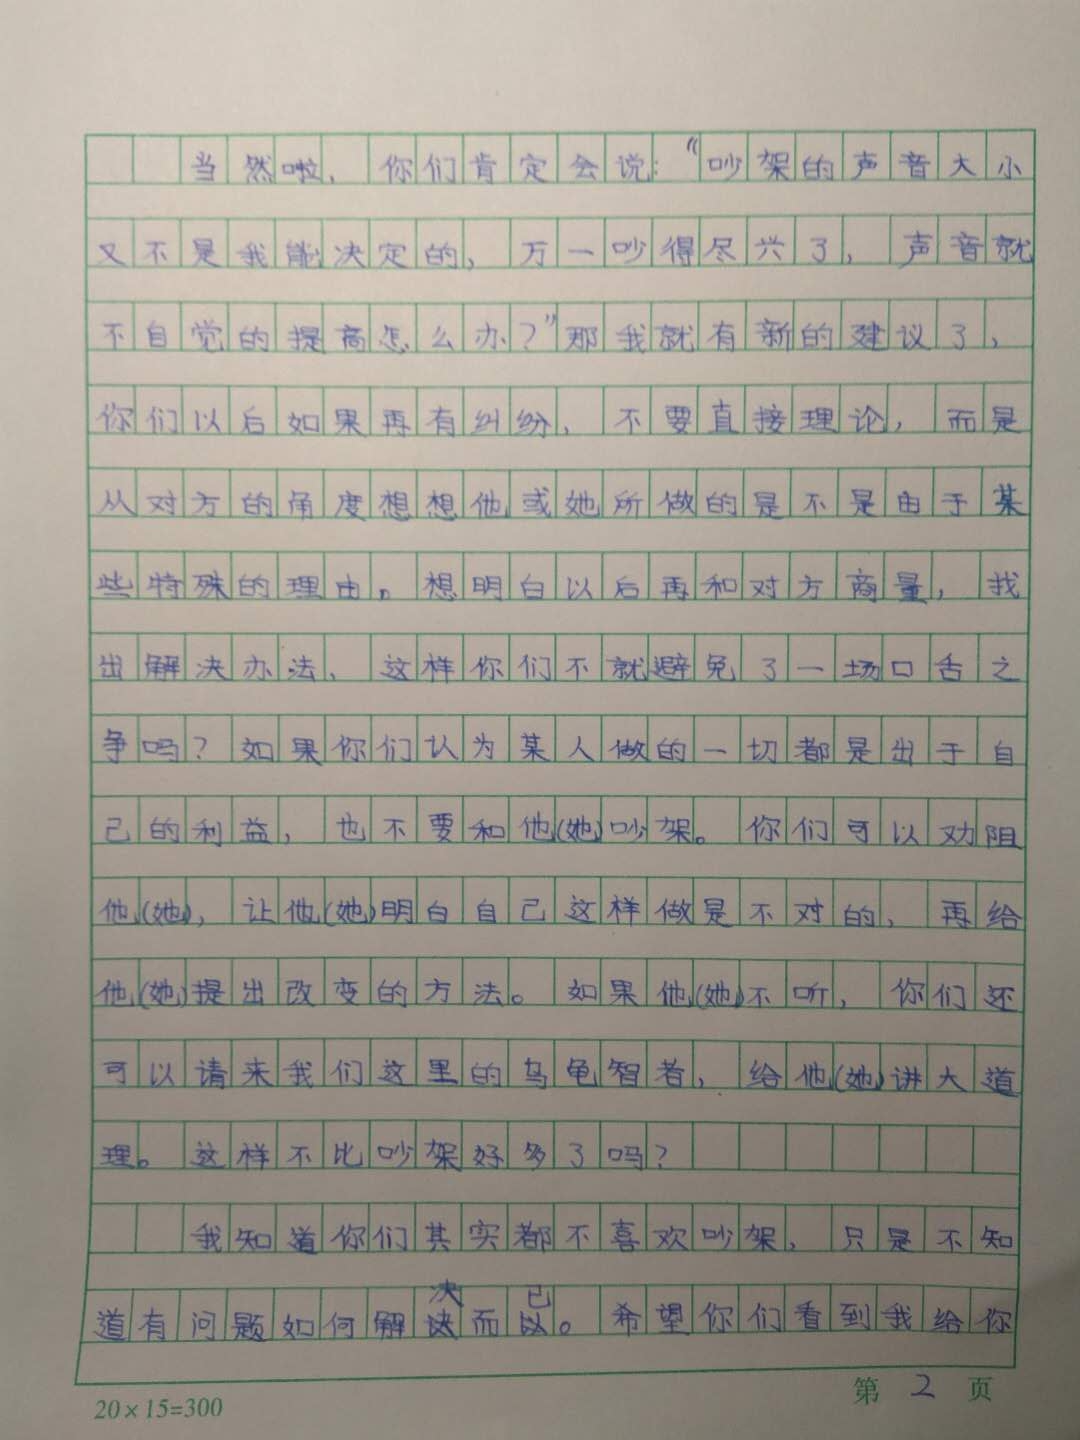 当然啦，你们肯定会说：“吵架的声音大小
又不是我能决定的，万一吵得尽兴了，声音就
不自觉的提高怎么办？”那我就有新的建议了，
你们以后如果再有纠纷，不要直接理论，而是
从对方的角度想想他或她所做的是不是由于某
些特殊的理由。想明白以后再和对方商量，找
出解决办法，这样你们不就避免了一场口舌之
争吗？如果你们认为某人做的一切都是出于自
己的利益，也不要和他(她)吵架。你们可以劝阻
他(她)，让他(她)明白自己这样做是不对的，再给
他(她)提出改变的方法。如果他(她)不听，你们还
可以请来我们这里的乌龟智者，给他(她)讲大道
理。这样不比吵架好多了吗？
我知道你们其实都不喜欢吵架，只是不知
决 已
道有问题如何解决而以。希望你们看到我给你
20×15=300
第 2 页